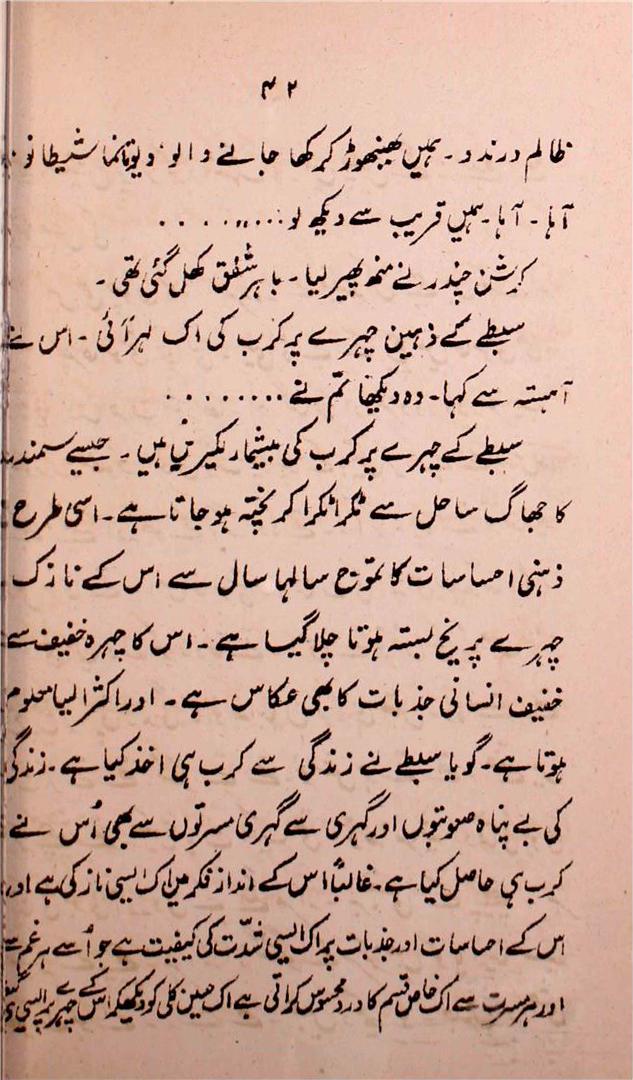 ۴۲
ظالم درندو۔ ہمیں بھنبھوڑ کر کھا جانے والو، دیوتا نما شیطانو
آہا۔ آہا۔ ہمیں قریب سے دیکھ لو........
کرشن چندر نے منھ پھیر لیا۔ باہر شفق کھل گئی تھی۔
سبطے کے ذہین چہرے پر کرب کی اک لہر آئی۔ اس نے
آہستہ سے کہا۔ وہ دیکھا تم نے.........
سبطے کے چہرے پر کرب کی بیشمار لکیریں ہیں۔ جیسے سمندر
کا جھاگ ساحل سے ٹکرا ٹکرا کر پختہ ہو جاتا ہے۔ اسی طرح
ذہنی احساسات کا تموّج سالہا سال سے اس کے نازک
چہرے پر یخ بستہ ہوتا چلا گیا ہے۔ اس کا چہرہ خفیف سے
خفیف انسانی جذبات کا بھی عکاس ہے۔ اور اکثر ایسا معلوم
ہوتا ہے۔ گویا سبطے نے زندگی سے کرب ہی اخذ کیا ہے۔ زندگی
کی بے پناہ صعوبتوں اور گہری سے گہری مسرتوں سے بھی اُس نے
کرب ہی حاصل کیا ہے۔ غالباً اس کے انداز فکر میں اک ایسی نازکی ہے اور
اس کے احساسات اور جذبات پر اک ایسی شدّت کی کیفیت ہے جو اُسے ہر غم سے
اور ہر مسرت سے اک خاص قسم کا درد محسوس کراتی ہے اک حسین کلی کو دیکھکر اس کے چہرے پر ایسی